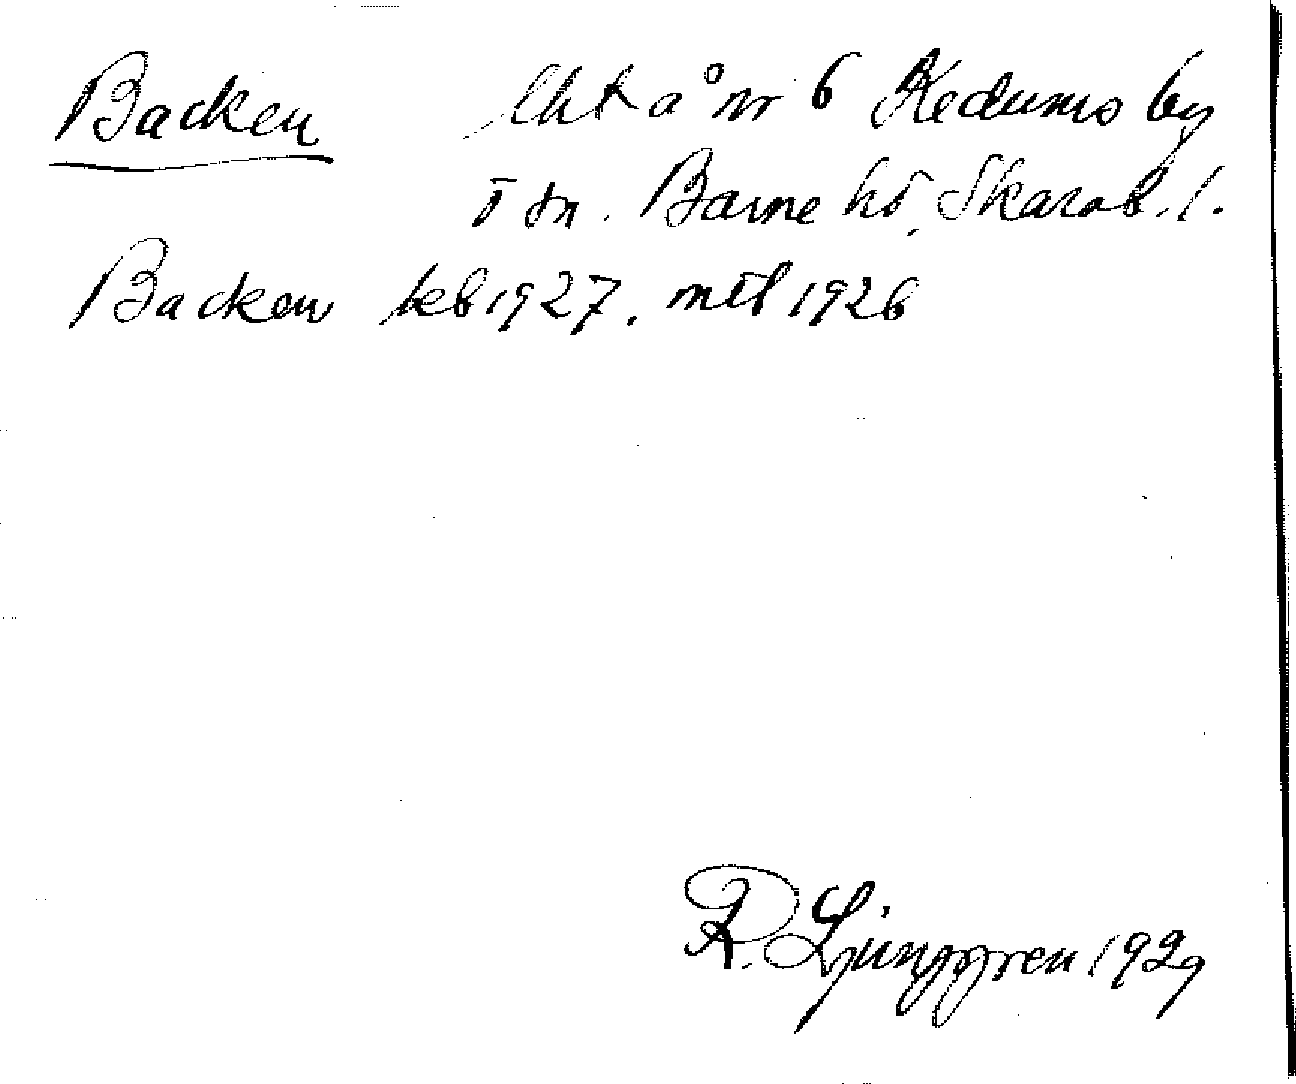 Backen lht å nr 6 Kedums by
i sn. Barne hd, Skarab. l.
Backen kb 1927, mtl 1926
R. Ljunggren 1929